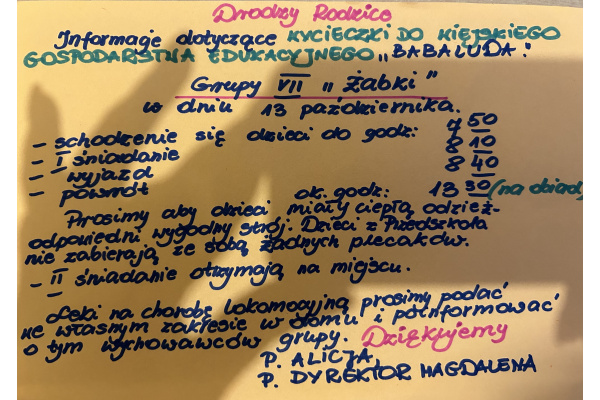 Drodzy Rodzice
Informacje dotyczące WYCIECZKI DO WIEJSKIEGO
GOSPODARSTWA EDUKACYJNEGO „BABALUDA".
Grupy VII „Żabki"
w dniu 13 października.
- schodzenie się dzieci do godz: 7 50
- I śniadanie 8 10
- wyjazd 8 40
- powrót ok. godz: 13 30 (na obiad)
Prosimy aby dzieci miały ciepłą odzież-
odpowiedni wygodny strój. Dzieci z Przedszkola
nie zabierają ze sobą żadnych plecaków.
- II śniadanie otrzymają na miejscu.
Leki na chorobę lokomocyjną prosimy podać
we własnym zakresie w domu i poinformować
o tym wychowawców grupy. Dziękujemy
P. ALICJA,
P. DYREKTOR MAGDALENA